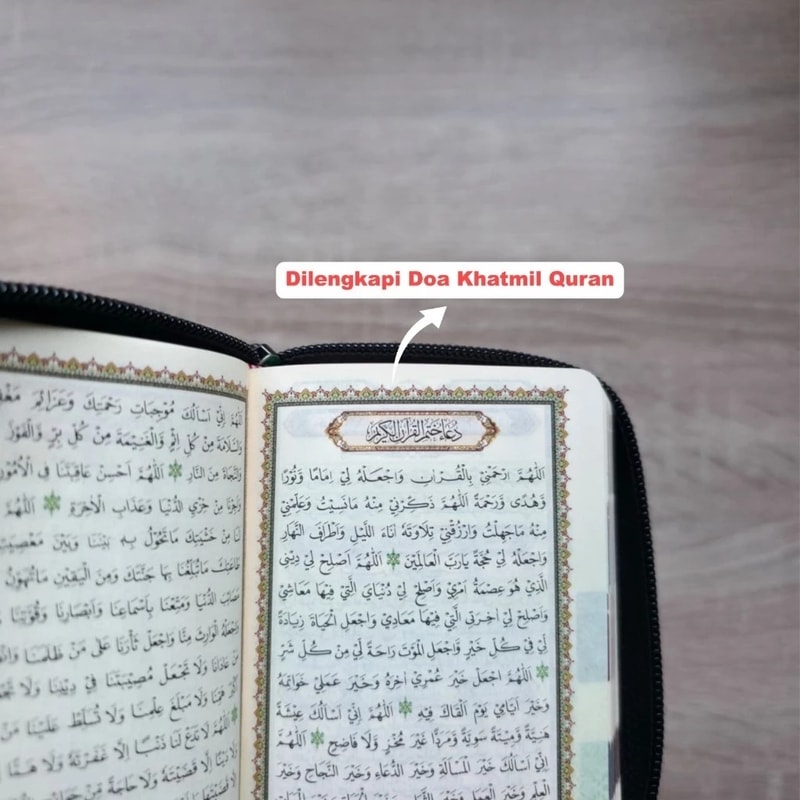 Dilengkapi Doa Khatmil Quran
دُعَاءُ خَتْمِ الْقُرْآنِ الْكَرِيْمِ
اَللّٰهُمَّ ارْحَمْنِيْ بِالْقُرْاٰنِ وَاجْعَلْهُ لِيْ اِمَامًا وَنُوْرًا
وَهُدًى وَرَحْمَةً اَللّٰهُمَّ ذَكِّرْنِيْ مِنْهُ مَانَسِيْتُ وَعَلِّمْنِيْ
مِنْهُ مَاجَهِلْتُ وَارْزُقْنِيْ تِلَاوَتَهُ اٰنَاءَ اللَّيْلِ وَاَطْرَافَ النَّهَارِ
وَاجْعَلْهُ لِيْ حُجَّةً يَارَبَّ الْعَالَمِيْنَ اَللّٰهُمَّ اَصْلِحْ لِيْ دِيْنِيَ
الَّذِيْ هُوَ عِصْمَةُ اَمْرِيْ وَاَصْلِحْ لِيْ دُنْيَايَ الَّتِيْ فِيْهَا مَعَاشِيْ
وَاَصْلِحْ لِيْ اٰخِرَتِيَ الَّتِيْ فِيْهَا مَعَادِيْ وَاجْعَلِ الْحَيَاةَ زِيَادَةً
لِيْ فِيْ كُلِّ خَيْرٍ وَاجْعَلِ الْمَوْتَ رَاحَةً لِيْ مِنْ كُلِّ شَرٍّ
اَللّٰهُمَّ اجْعَلْ خَيْرَ عُمْرِيْ اٰخِرَهُ وَخَيْرَ عَمَلِيْ خَوَاتِمَهُ
وَخَيْرَ اَيَّامِيْ يَوْمَ اَلْقَاكَ فِيْهِ اَللّٰهُمَّ اِنِّيْ اَسْأَلُكَ عِيْشَةً
هَنِيَّةً وَمِيْتَةً سَوِيَّةً وَمَرَدًّا غَيْرَ مُخْزٍ وَلَا فَاضِحٍ اَللّٰهُمَّ
اِنِّيْ اَسْأَلُكَ خَيْرَ الْمَسْأَلَةِ وَخَيْرَ الدُّعَاءِ وَخَيْرَ النَّجَاحِ وَخَيْرَ
الْعِلْمِ وَخَيْرَ الْعَمَلِ وَخَيْرَ
اَللّٰهُمَّ اِنِّيْ اَسْأَلُكَ مُوْجِبَاتِ رَحْمَتِكَ وَعَزَائِمَ
وَالسَّلَامَةَ مِنْ كُلِّ اِثْمٍ وَالْغَنِيْمَةَ مِنْ كُلِّ بِرٍّ وَالْفَوْزَ
وَالنَّجَاةَ مِنَ النَّارِ اَللّٰهُمَّ اَحْسِنْ عَاقِبَتَنَا فِي الْاُمُوْرِ
وَاَجِرْنَا مِنْ خِزْيِ الدُّنْيَا وَعَذَابِ الْاٰخِرَةِ اَللّٰهُمَّ
لَنَا مِنْ خَشْيَتِكَ مَاتَحُوْلُ بِهِ بَيْنَنَا وَبَيْنَ
طَاعَتِكَ مَاتُبَلِّغُنَا بِهَا جَنَّتَكَ وَمِنَ الْيَقِيْنِ مَاتُهَوِّنُ
مَصَائِبَ الدُّنْيَا وَمَتِّعْنَا بِاَسْمَاعِنَا وَاَبْصَارِنَا وَقُوَّتِنَا
وَاجْعَلْهُ الْوَارِثَ مِنَّا وَاجْعَلْ ثَأْرَنَا عَلٰى مَنْ ظَلَمَنَا
مَنْ عَادَانَا وَلَا تَجْعَلْ مُصِيْبَتَنَا فِيْ دِيْنِنَا وَلَا
اَكْبَرَ هَمِّنَا وَلَا مَبْلَغَ عِلْمِنَا وَلَا تُسَلِّطْ عَلَيْنَا مَنْ
اَللّٰهُمَّ لَا تَدَعْ لَنَا ذَنْبًا اِلَّا غَفَرْتَهُ وَلَا هَمًّا